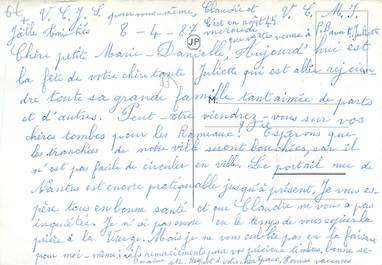 V. C. J. S. pour vous-même, Claudie et V. C. M. J.
Joëlle Amitiés 8 - 4 - 87 C'est en août 45
JP
Chère petite Marie-Danielle, Aujourd'hui est
la fête de votre chère tante Juliette qui est allée rejoin-
dre toute sa grande famille tant aimée de parts
et d'autres. Peut-être viendrez-vous sur vos
chères tombes pour les Rameaux! Espérons que
les tranchées de notre ville seront bouchées, car il
n'est pas facile de circuler en ville. Le portail rue de
Nantes est encore pratiquable jusqu'à présent, Je vous es-
père tous en bonne santé et que Claudie ne vous a pas
inquiétée. Je n'ai pas le temps de vous copier la
prière à la Vierge. Mais je ne vous oublie pas en la faisant
pour moi-même, remerciements pour vos précieux timbres, bonne se-
maine Bonnes vacances